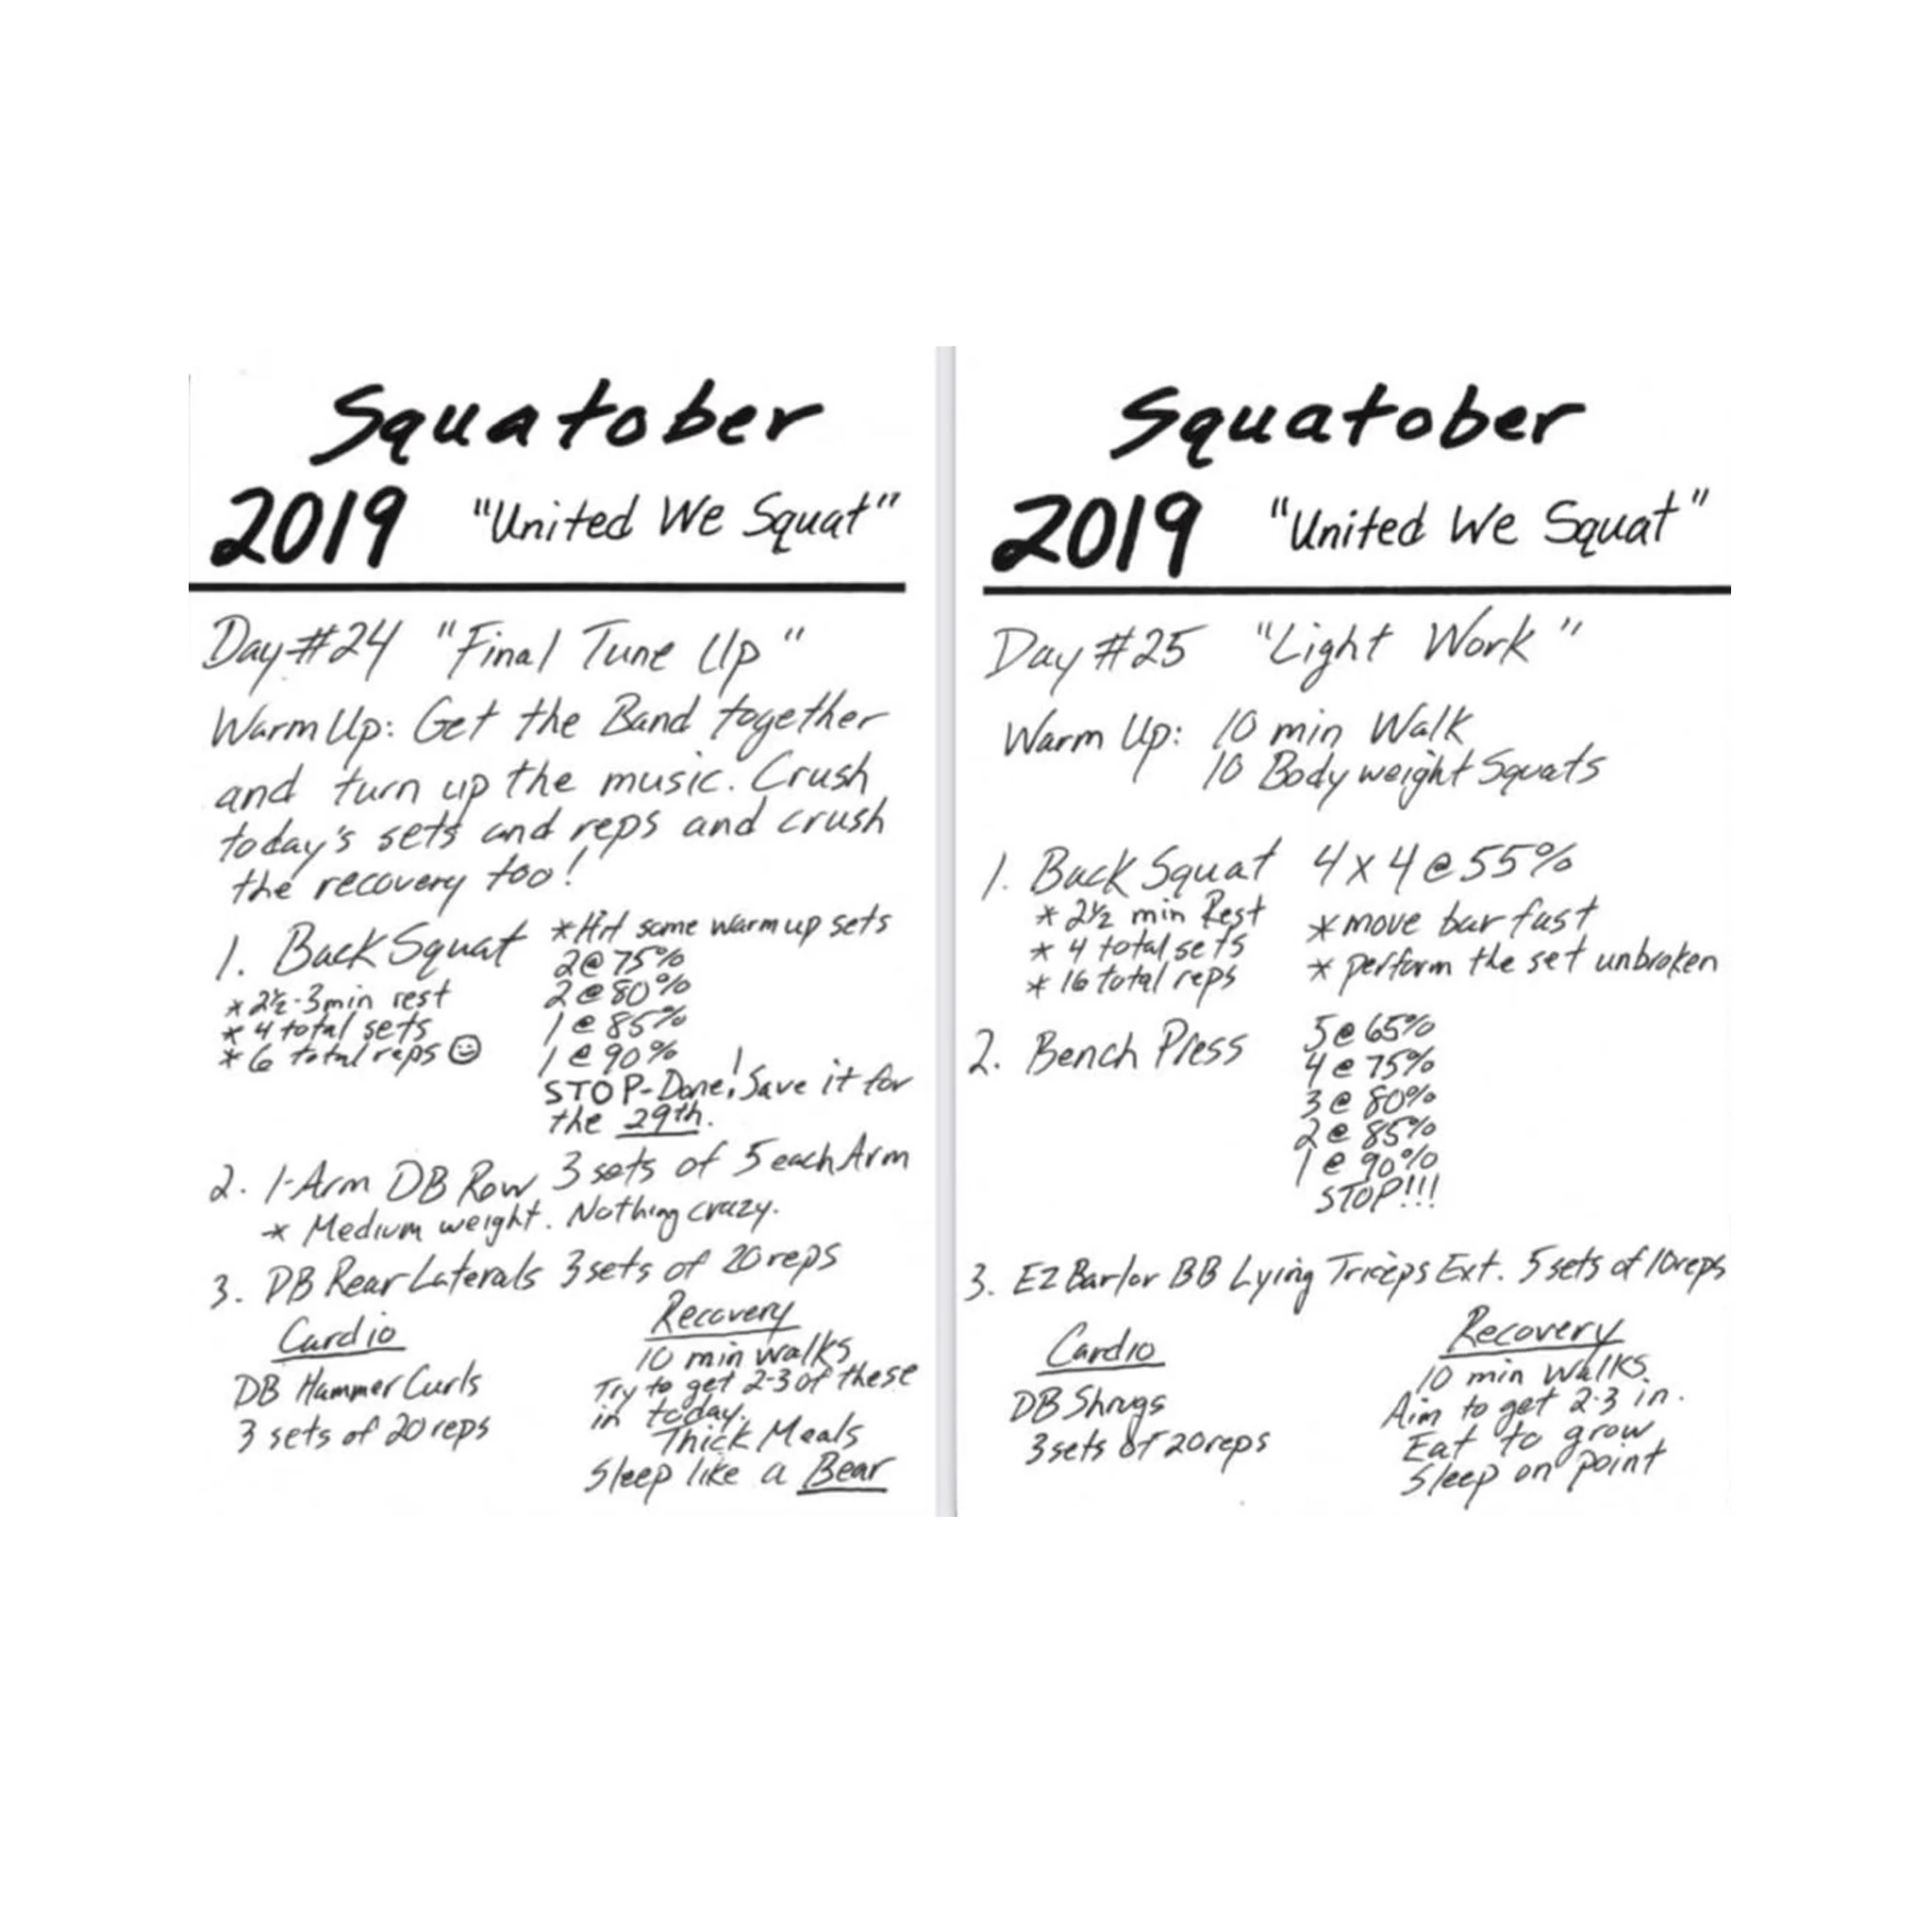 Squatober
2019 "United We Squat"
Day #24 "Final Tune Up"
Warm Up: Get the Band together
and turn up the music. Crush
today's sets and reps and crush
the recovery too!
1. Back Squat *Hit some warm up sets
2@75%
2@80%
1@85%
1@90%
* 2½-3min rest
* 4 total sets
* 6 total reps ☺
STOP-Done! Save it for
the 29th.
2. 1-Arm DB Row 3 sets of 5 each Arm
* Medium weight. Nothing crazy.
3. DB Rear Laterals 3 sets of 20 reps
Cardio
DB Hammer Curls
3 sets of 20 reps
Recovery
10 min walks
Try to get 2-3 of these
in today.
Thick Meals
Sleep like a Bear
Squatober
2019 "United We Squat"
Day #25 "Light Work"
Warm Up: 10 min Walk
10 Body weight Squats
1. Back Squat 4x4@55%
* 2½ min Rest
* 4 total sets
* 16 total reps
* move bar fast
* perform the set unbroken
2. Bench Press 5@65%
4@75%
3@80%
2@85%
1@90%
STOP!!!
3. EZ Bar/or BB Lying Triceps Ext. 5 sets of 10 reps
Cardio
DB Shrugs
3 sets of 20 reps
Recovery
10 min Walks
Aim to get 2-3 in.
Eat to grow
Sleep on point